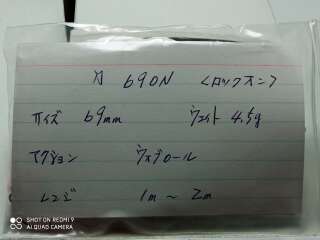 690N
サイズ 69mm ウェイト 4.5g
アクション ウォブロール
レンジ 1m 〜 2m
SHOT ON REDMI 9
AI QUAD CAMERA